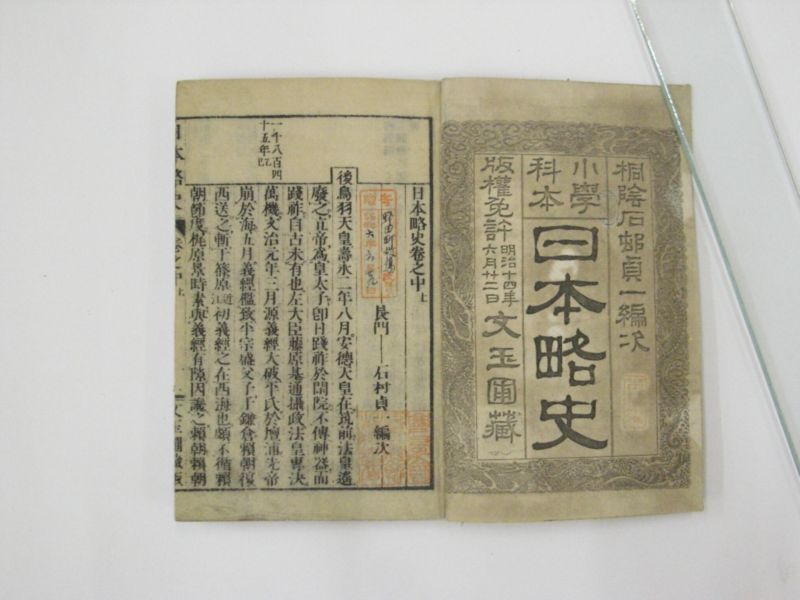 桐陰石邨貞一編次
小學
科本
日本略史
版權免許
明治十四年
六月廿二日
文玉圃藏
日本略史卷之中上
長門 石村貞一編次
後鳥羽天皇壽永二年八月安德天皇在筑前法皇遙
廢之立帝爲皇太子卽日踐祚於閑院不傳神器而
踐祚自古未有也左大臣藤原基通攝政法皇專決
萬機文治元年三月源義經大破平氏於壇浦先帝
崩於海五月義經檻致平宗盛父子于鎌倉賴朝復
西送之斬于篠原初義經之在西海也頗不循賴
朝節度梶原景時素與義經有隙因譖之賴朝賴朝
一千八百四
十五年乙巳
日本略史
卷之中上